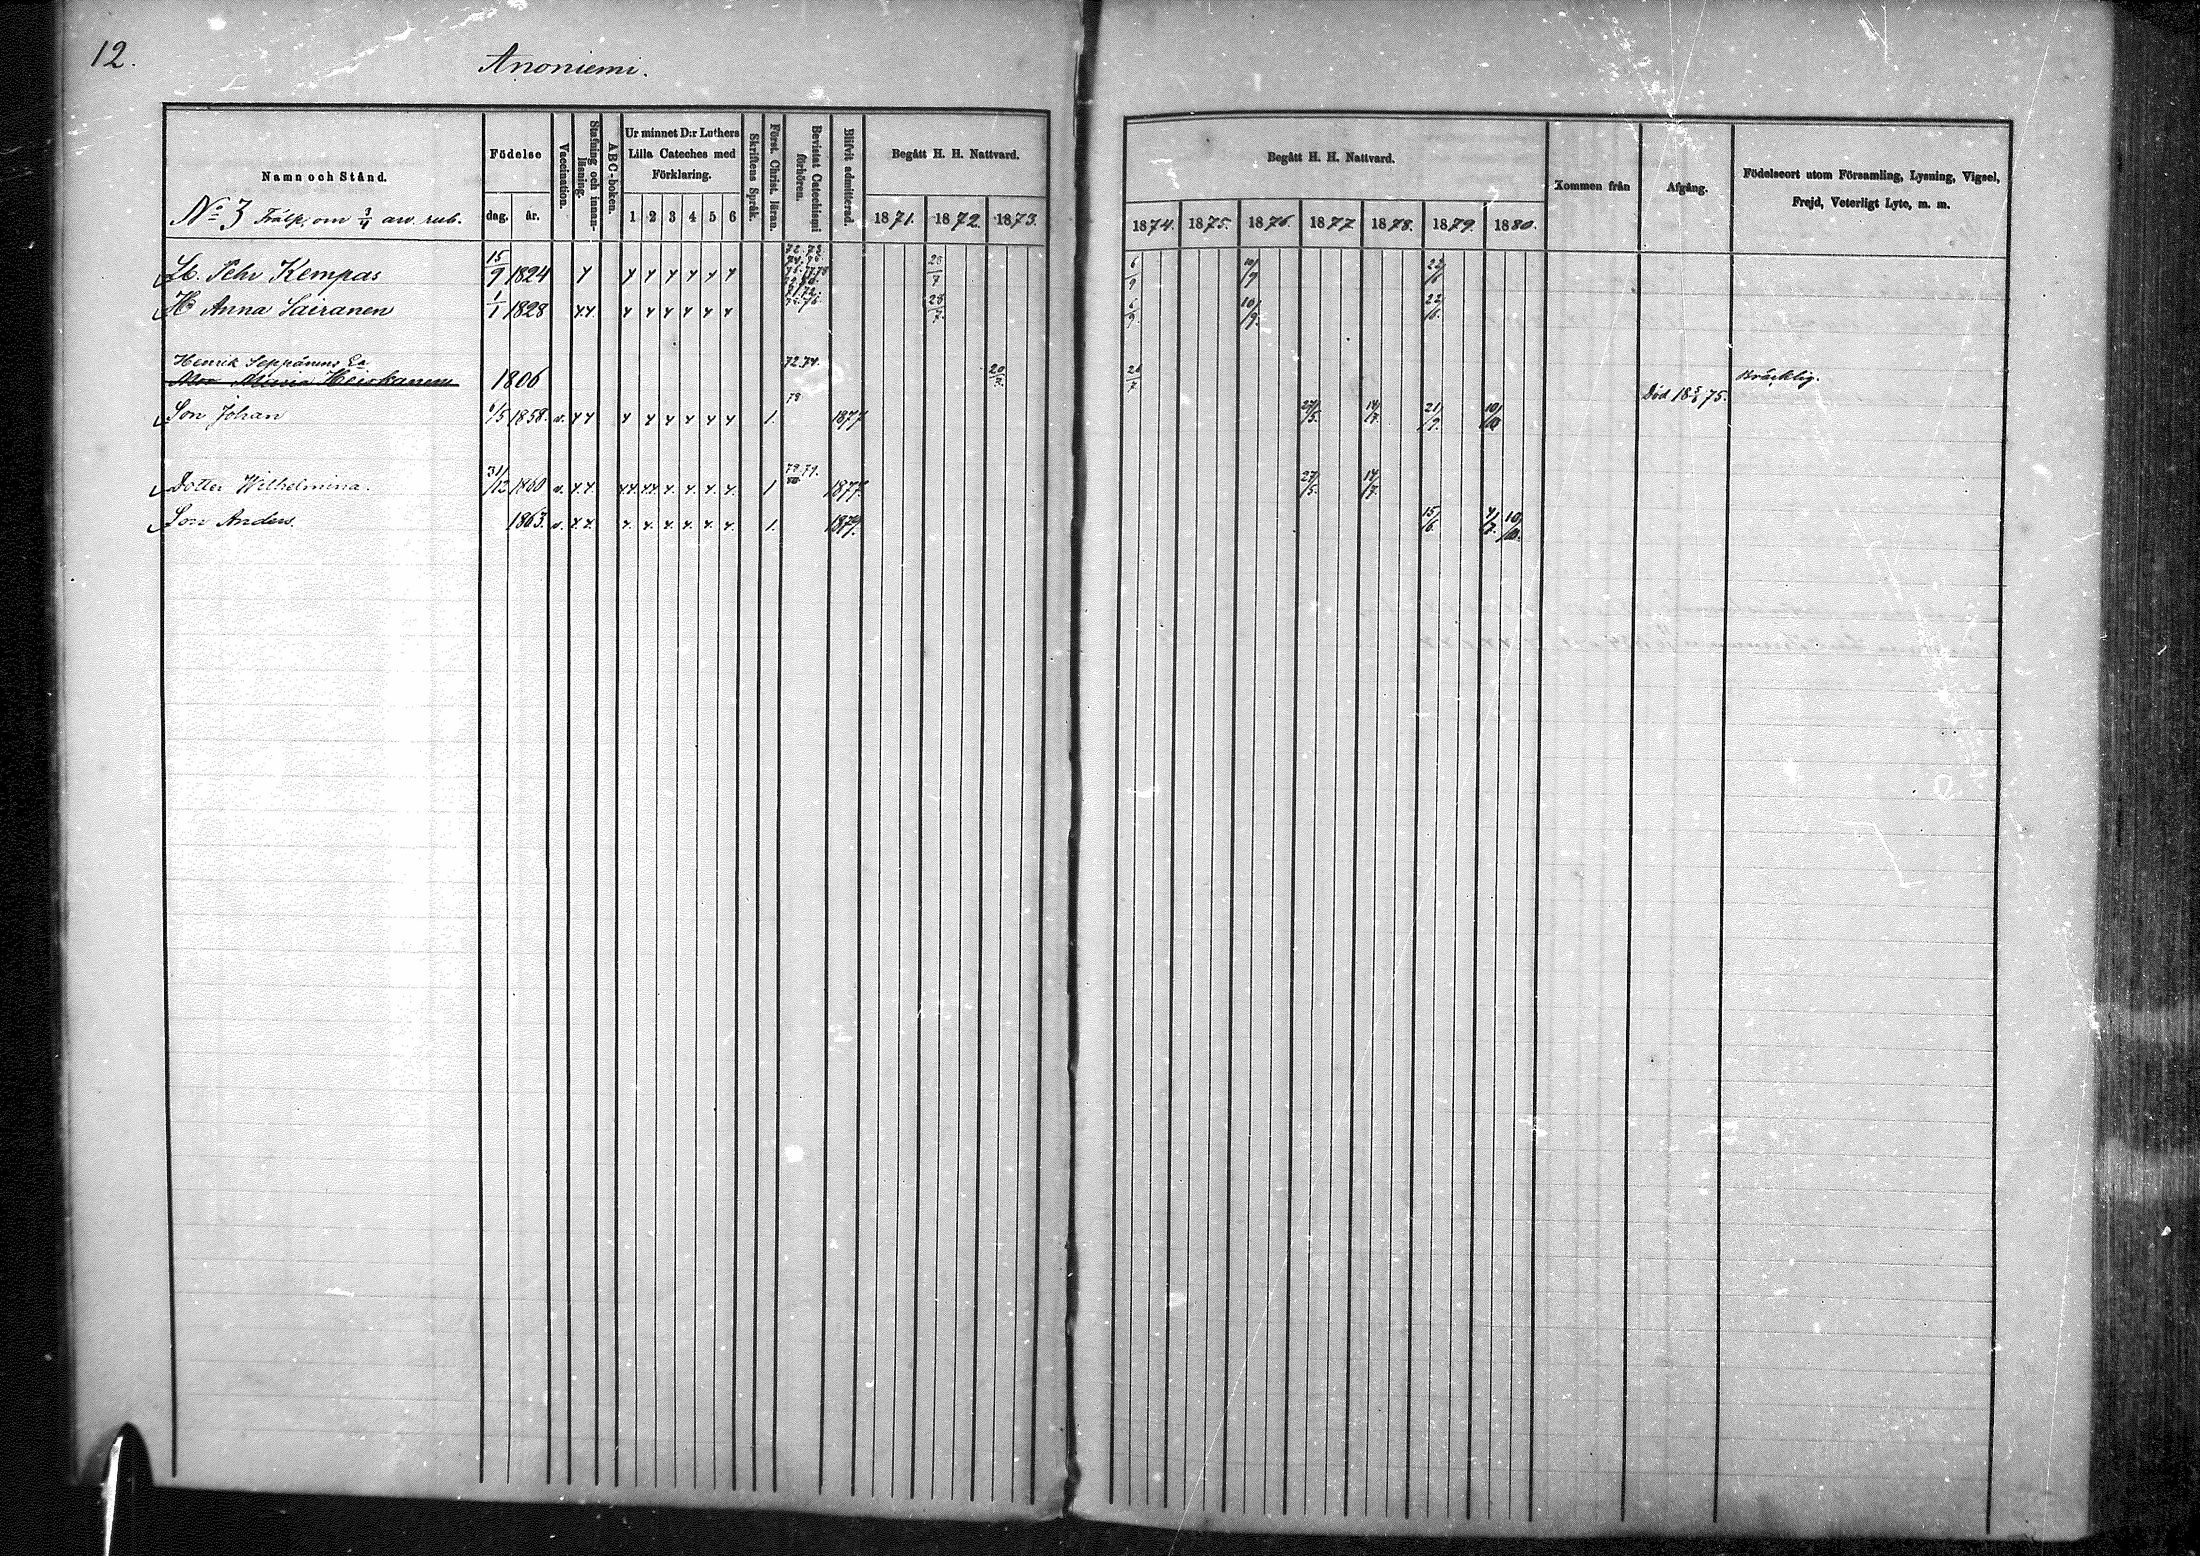 12.
Anoniemi.
Namn och Stånd.
Födelse
dag. år.
Vaccination.
Stafning och innanläsning.
ABC-boken.
Ur minnet D:r Luthers
Lilla Cateches med
Förklaring.
1 2 3 4 5 6
Skriftens Språk.
Först. Christ. läran.
Bevistat Catechismi förhören.
Blifvit admitterad.
Begått H. H. Nattvard.
1871. 1872. 1873.
Begått H. H. Nattvard.
1874. 1875. 1876. 1877 1878. 1879. 1880.
Kommen från
Afgång.
Födelseort utom Församling, Lysning, Vigsel,
Frejd, Veterligt Lyte, m. m.
No 3 om 3/4 rub.
Pehr Kempas 15/9 1824 28/7 6/9 10/9 22/6
H Anna Sairanen 1/1 1828 28/7. 6/9. 10/9. 22/6.
Henrik Seppänens Ea 72.74.
1806 20/7. Bräcklig.
Död 18 75.
Son Johan 1858. v. 1. 78 1877 27/5. 14/7. 21/9. 10/10
Dotter Wilhelmina. 31/12 1860 v. 1 1877 27/5. 14/7.
Son Anders. 1863. v. 1. 1879. 15/6. 4/7. 10/10.